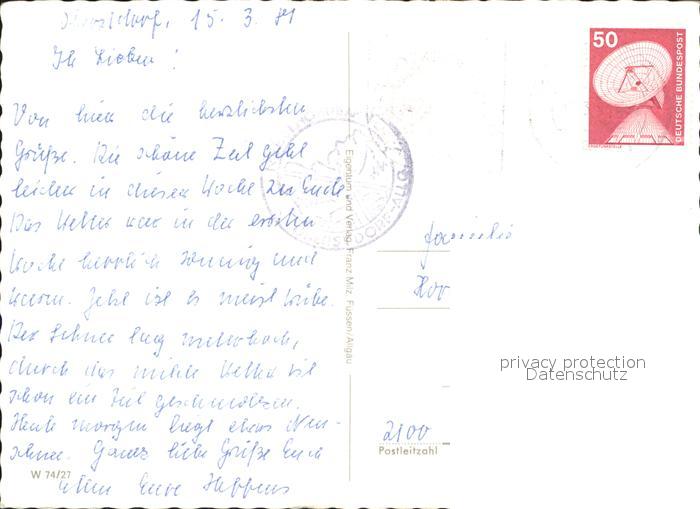 15. 3. 81
Ihr Lieben!
Von hier die herzlichsten
Grüße. Die schöne Zeit geht
leider in dieser Woche zu Ende
Das Wetter war in der ersten
Woche herrlich sonnig und
warm. Jetzt ist es meist trübe.
Der Schnee lag meterhoch,
durch das milde Wetter ist
schon ein Teil geschmolzen.
Heute morgen liegt etwas Neu-
schnee. Ganz liebe Grüße Euch
allen Eure
W 74/27
Eigentum und Verlag Franz Milz, Füssen/Allgäu
50
DEUTSCHE BUNDESPOST
ERDFUNKSTELLE
Familie
2100
Postleitzahl
privacy protection
Datenschutz